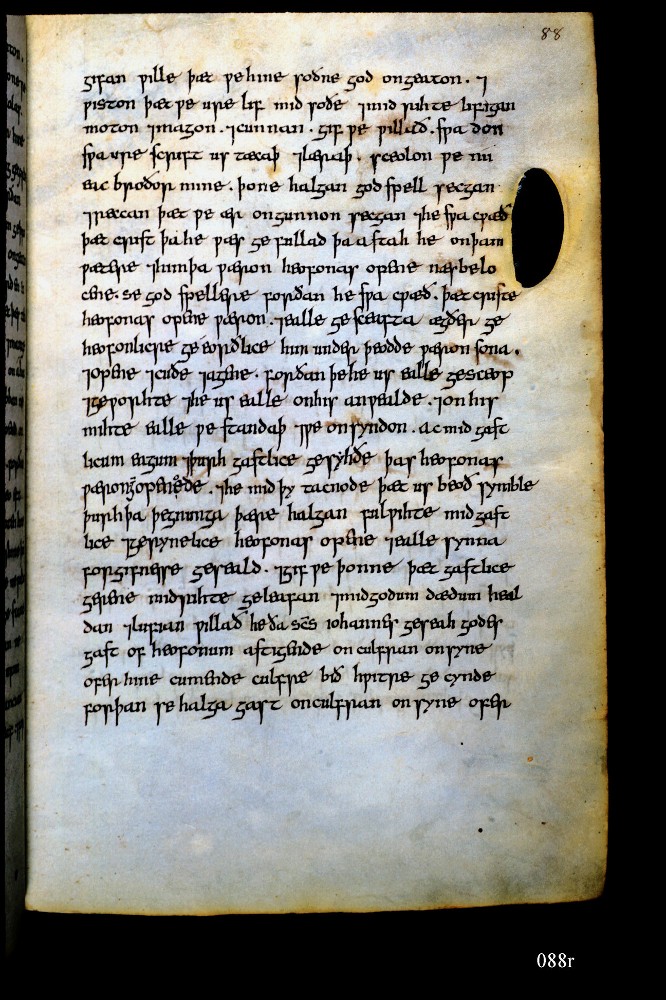 88
gifan ƿille þæt ƿe hine soðne god ongeaton . ⁊
ƿiston þæt ƿe ure lif mid soðe ⁊ mid rihte lifigan
moton ⁊ magon . ⁊ cunnan . gif ƿe ƿillað . sƿa don
sƿa ure scrift us tæcaþ ⁊ læraþ . sceolon ƿe nu
eac broðor mine . þone halgan godspell secgan
⁊ reccan þæt ƿe ær ongunnon secgan ⁊ he sƿa cƿæð
þæt crist þa he ƿæs gefullad þa astah he on þam
ƿætere ⁊ him þa ƿæron heofonas opene næs belo
cene . se godspellere forðan he sƿa cƿæð . þæt criste
heofonas opene ƿæron . ⁊ ealle gesceafta ægðer ge
heofonlicre ge eorðlice him under þeodde ƿæron sona .
⁊ opene ⁊ cuðe ⁊ agene . forðan þe he us ealle gesceop
⁊ geƿorhte ⁊ he us ealle on his anƿealde . ⁊ on his
mihte ealle ƿe standaþ ⁊ ƿe on syndon . ac mid gast
licum eagum ⁊ þurh gastlice gesyhðe þas heofonas
ƿæron geopenede . ⁊ he mid þy tacnode þæt us beoð symble
þurh þa þegnunga þære halgan fulƿihte mid gast
lice ⁊ gesynelice heofonas opene ⁊ ealle synna
forgifnesse geseald . ⁊ gif ƿe þonne þæt gastlice
geryne mid rihte geleafan ⁊ mid godum dædum heal
dan ⁊ lufian ƿillað he ða scs iohannes geseah godes
gast of heofonum astigende on culfran onsyne
ofer hine cumende culfre bið hƿitre gecynde
forþan se halga gast on culfran onsyne ofer
088r